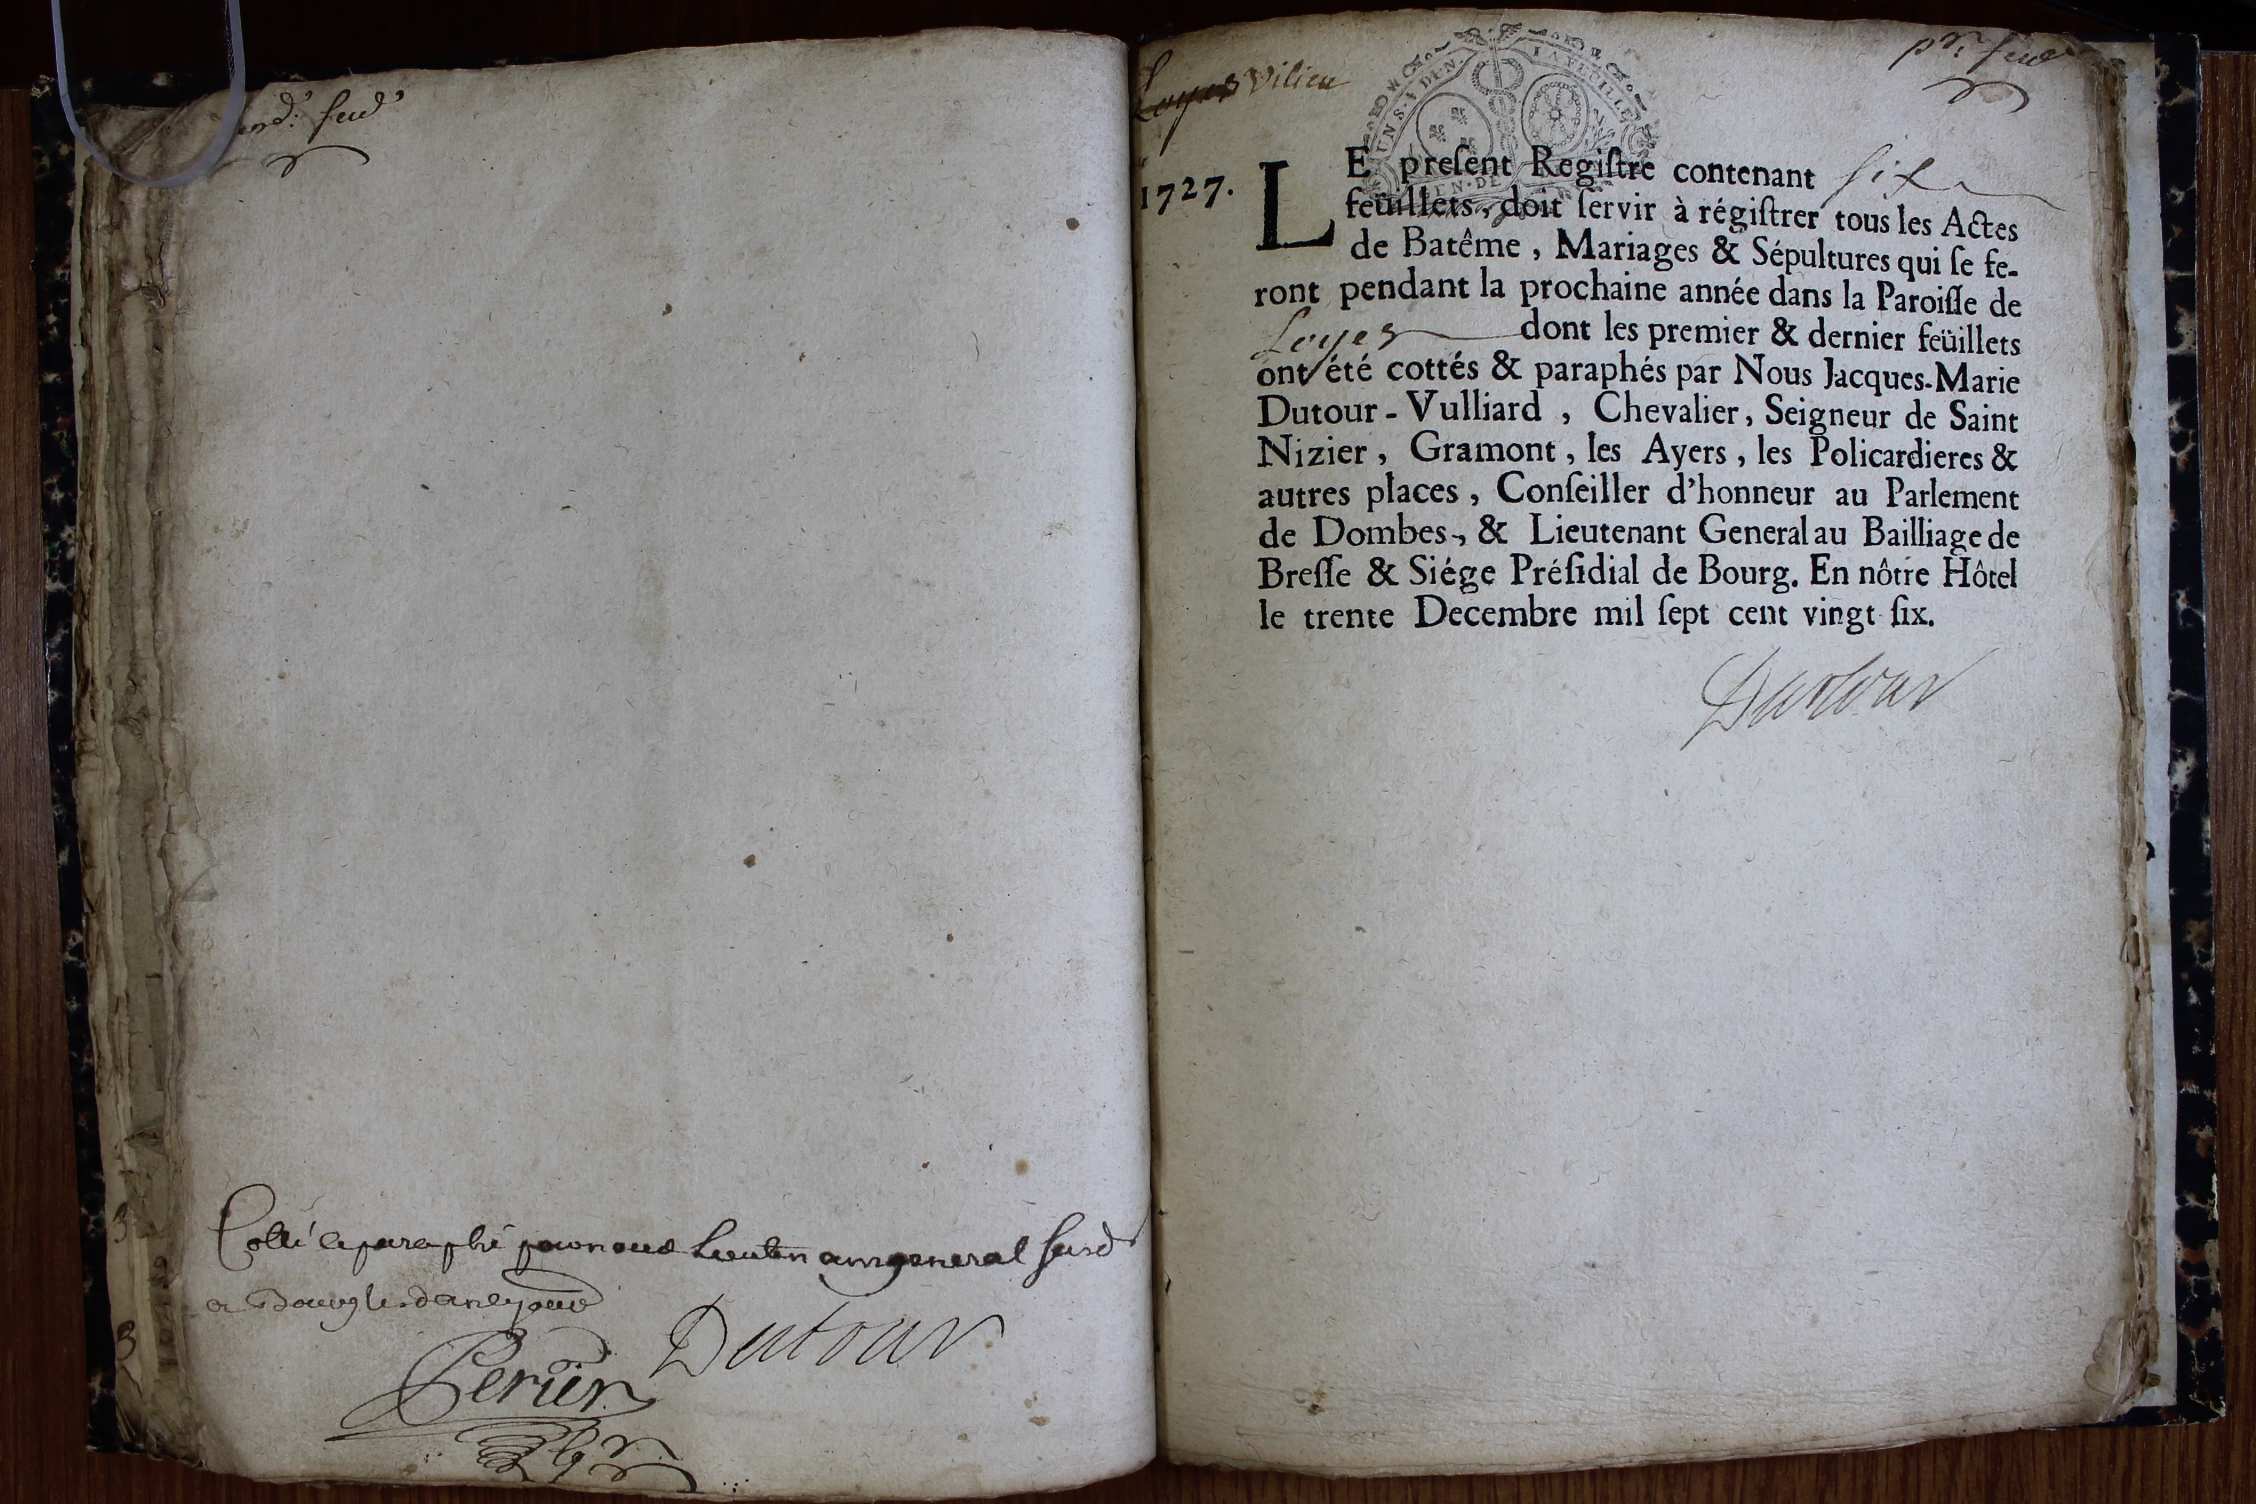 Cotté et paraphé par nous Lieutenant general susd
Perier
Dutour
Loyes Vilieu
UN S. 4 DEN. LA FEUILLE
1727.
LE preſent Regiſtre contenant six
feüillets, doit ſervir à régiſtrer tous les Actes
de Batême, Mariages & Sépultures qui ſe fe-
ront pendant la prochaine année dans la Paroiſſe de
Loyes dont les premier & dernier feüillets
ont été cottés & paraphés par Nous Jacques-Marie
Dutour-Vulliard, Chevalier, Seigneur de Saint
Nizier, Gramont, les Ayers, les Policardieres &
autres places, Conſeiller d'honneur au Parlement
de Dombes, & Lieutenant General au Bailliage de
Breſſe & Siége Préſidial de Bourg. En nôtre Hôtel
le trente Decembre mil ſept cent vingt ſix.
Dutour